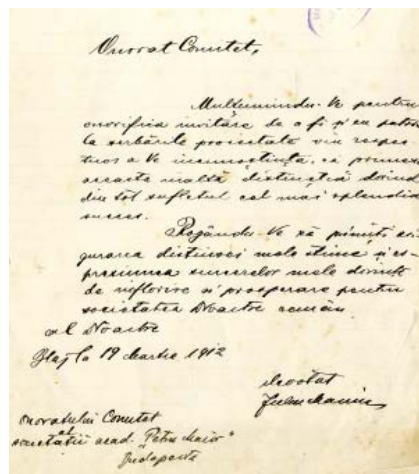 Onorat Comitet,
Mulțumindu-Ve pentru
onorifica invitare de a fi și eu patron
la serbările proiectate vin respec-
tuos a Ve încunoștința, că primesc
aceasta înaltă distincție dorind
din tot sufletul cel mai splendid
succes.
Rogându-Ve să primiți asi-
gurarea distinsei mele stime și es-
presiunea sincerelor mele dorințe
de înflorire și prosperare pentru
societatea Noastre român.
al Noastre
Blaj la 19 Martie 1912
devotat
Iuliu Maniu
Onoratului Comitet
al
societății acad. "Petru Maior"
Budapesta